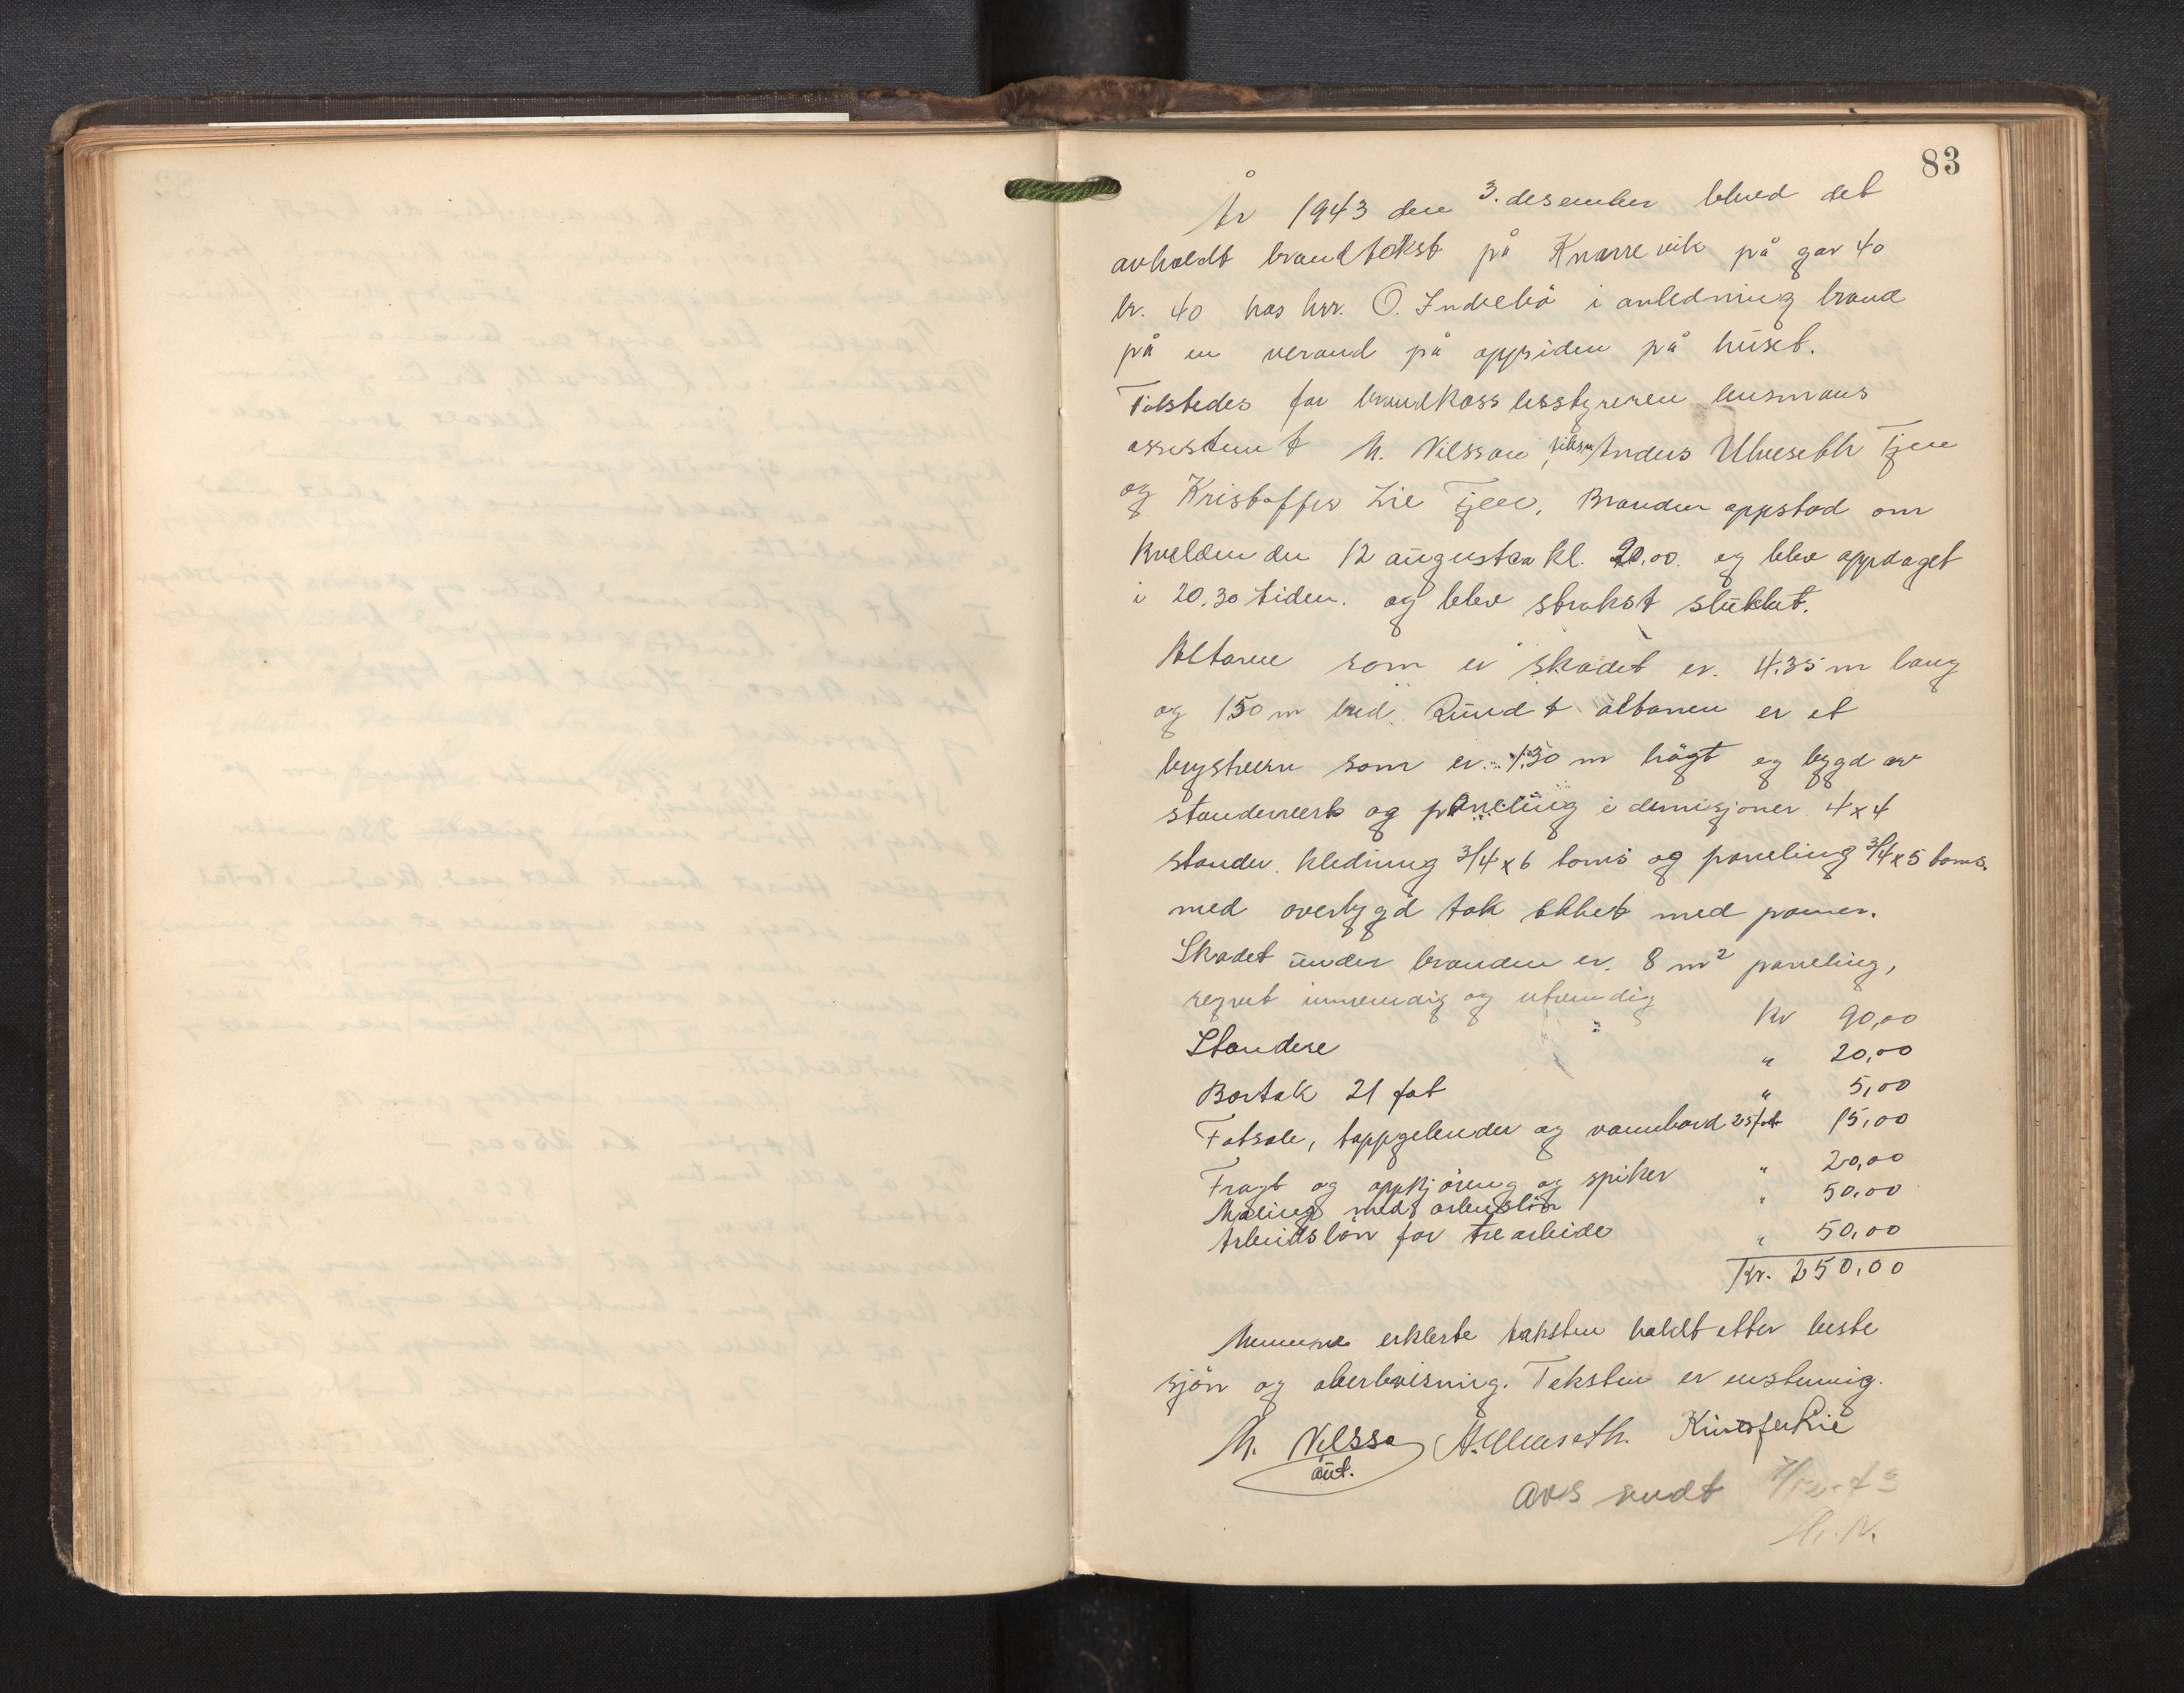 83
År 1943 den 3. desember blved det
avholdt brandtakst på Knarrevik på gar 40
br. 40 hos hrr. O. Indrebö i anledning brand
på en verand på oppsiden på huset.
Tilstedes for brandkassbestyreren lensmans
assistent M. Nilsson, Anders Ulveseth Fjell
og Kristoffer Lie Fjell. Branden oppstod om
kvelden den 12 august ca kl. 20.00. og blev oppdaget
i 20.30 tiden. og blev strakst slukket.
Altanen som er skadet er. 4.35 m lang
og 150 m bred. Rundt altanen er et
brystvern som er. 1.30 m högt og bygd av
standerverk og paneling i demisjoner 4x4
stander. kledning 3/4 x 6 toms og paneling 3/4 x 5 toms.
med overbygd tak tekket med panner.
Skadet under branden er. 8 m² paneling,
regnet innvendig og utvendig Kr 90,00
Standere " 20,00
Bortak 21 fot " 5,00
Fotsole, toppgelender og vannbord 25 fot 15,00
Fragt og oppkjöring og spiker " 20,00
Maling med arbeislön " 50.00
Arbeidslön for trearbeide " 50,00
Kr. 250,00
Mennene erklerte taksten holdt etter beste
sjön og oberbevisning. Taksten er enstemig.
M. Nilsso A. Ulveseth. Kristoffer Lie
aut.
avs sendt
M. N.